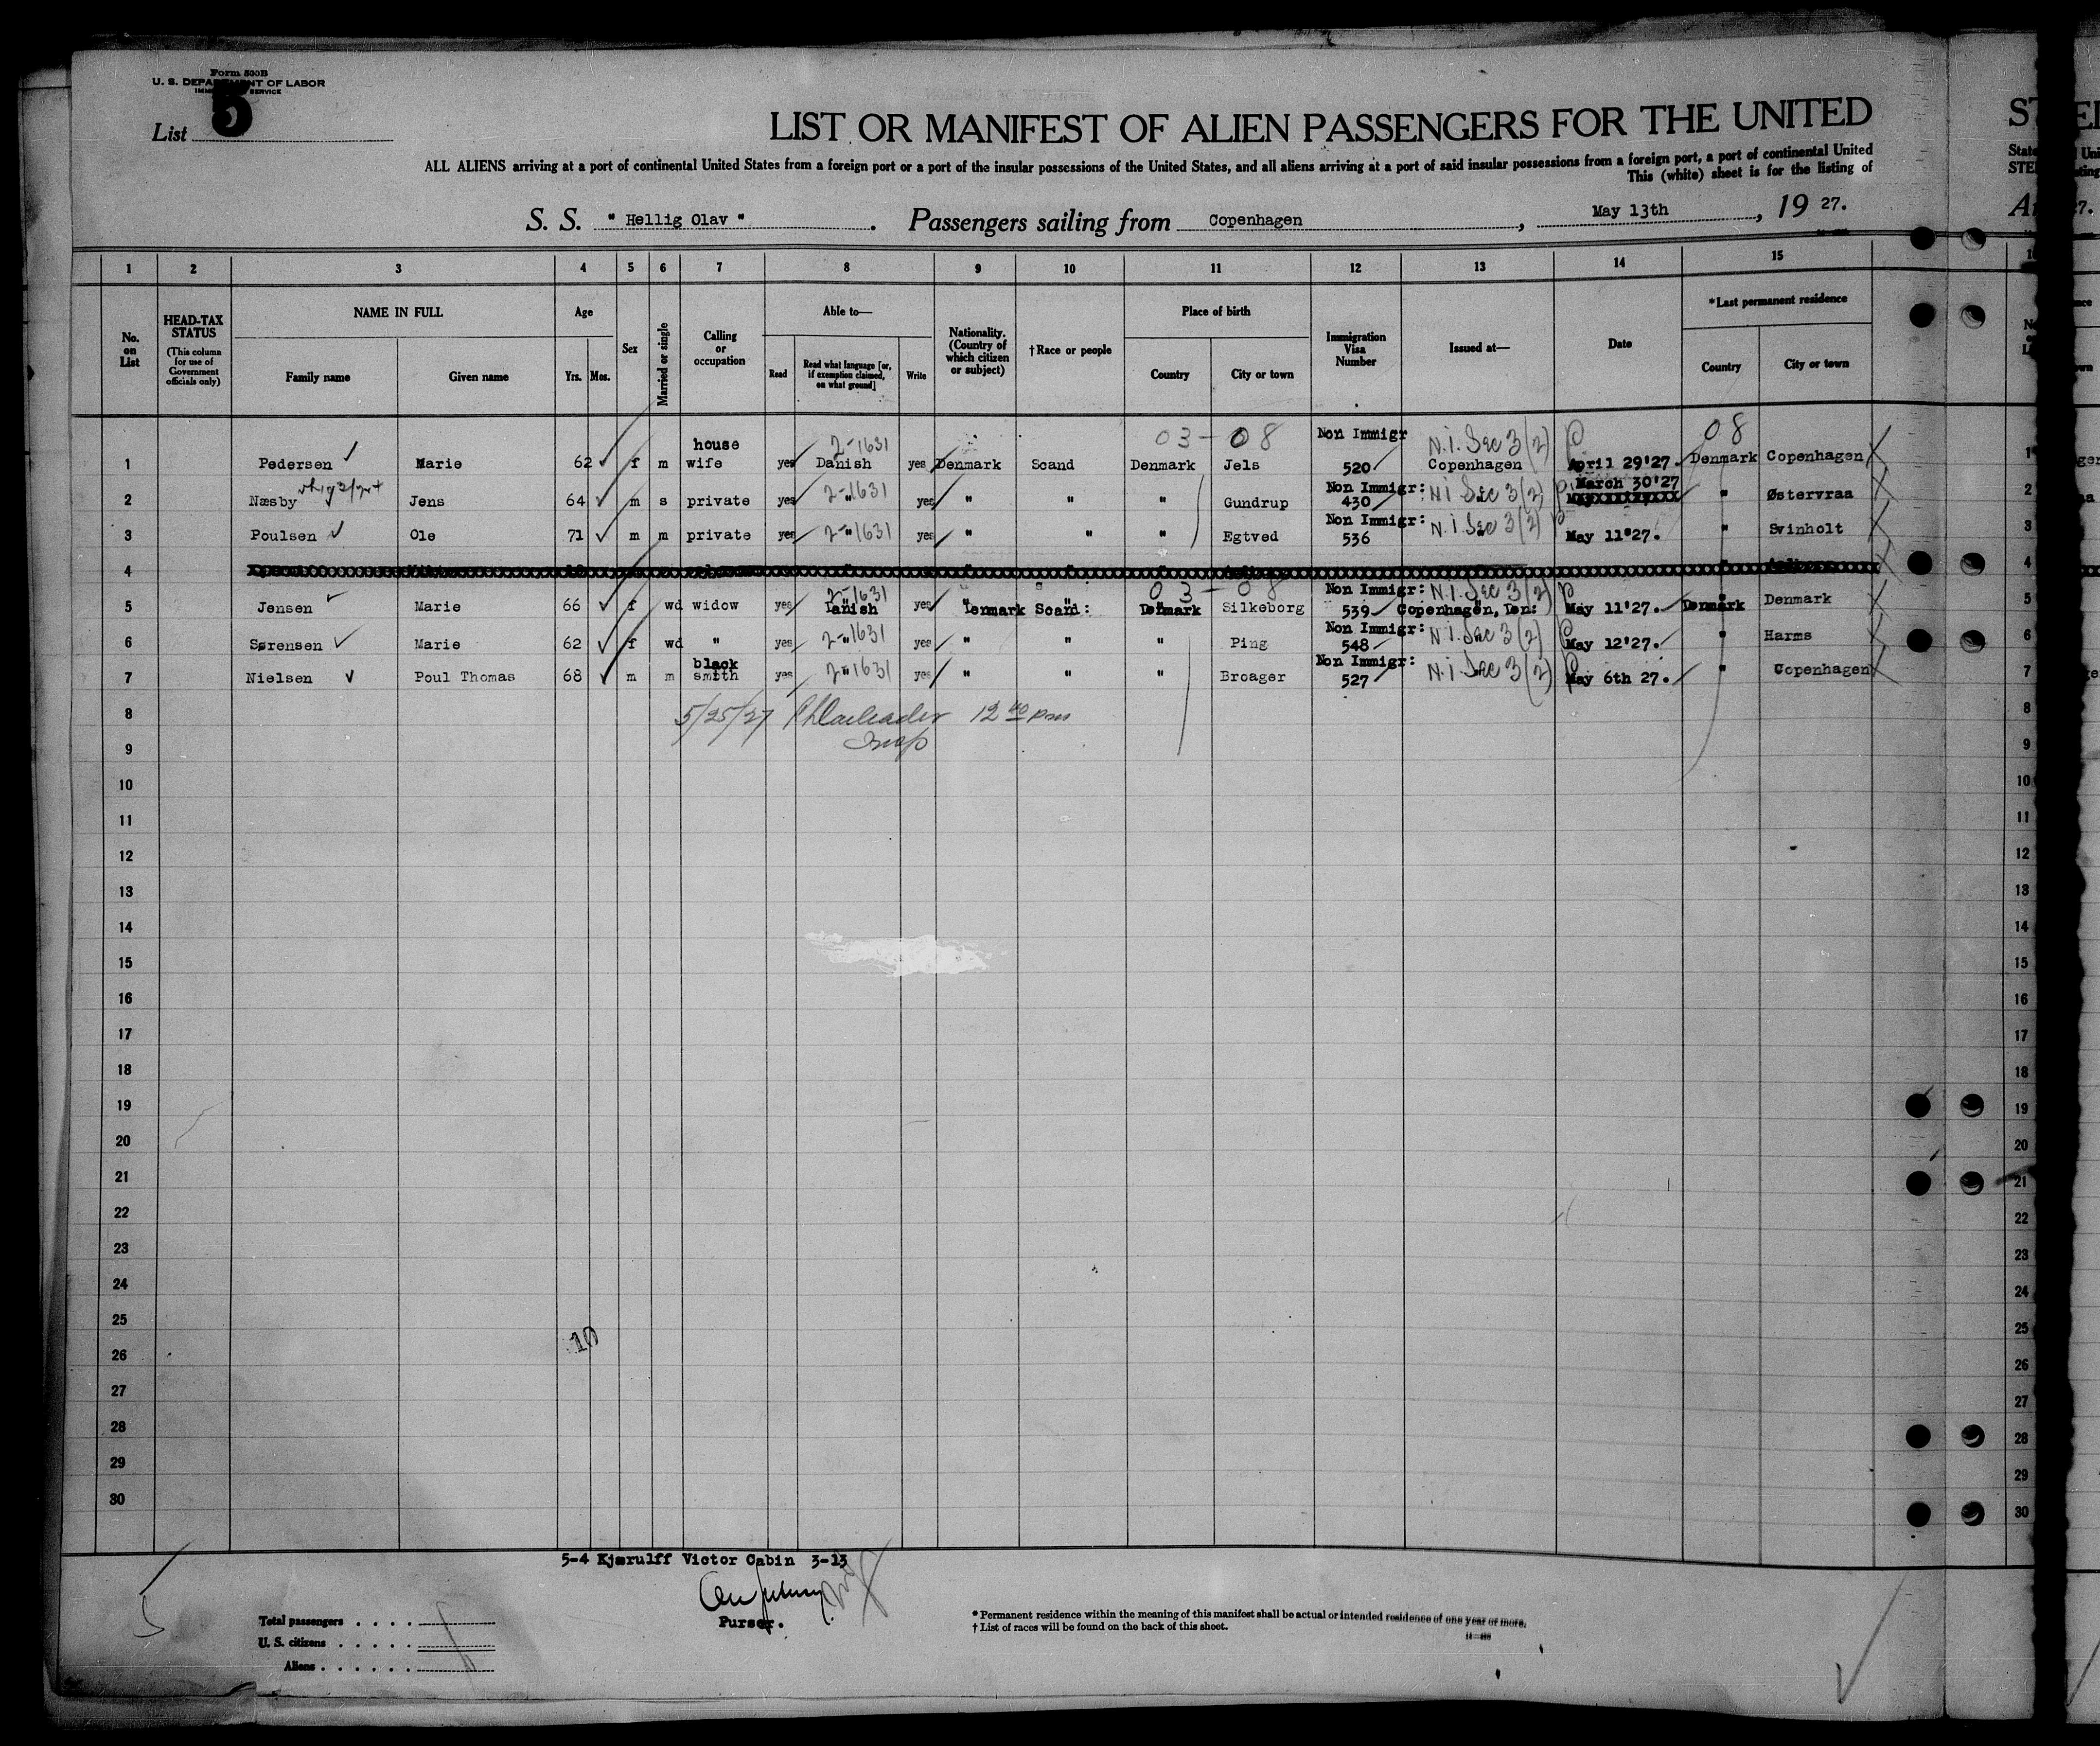 Form 500B
U. S. DEPARTMENT OF LABOR
IMMIGRATION SERVICE
List 5
LIST OR MANIFEST OF ALIEN PASSENGERS FOR THE UNITED
ALL ALIENS arriving at a port of continental United States from a foreign port or a port of the insular possessions of the United States, and all aliens arriving at a port of said insular possessions from a foreign port, a port of continental United
This (white) sheet is for the listing of
S. S. " Hellig Olav ". Passengers sailing from Copenhagen, May 13th, 19 27.
1 2 3 4 5 6 7 8 9 10 11 12 13 14 15
No. on List
HEAD-TAX STATUS
(This column for use of Government officials only)
NAME IN FULL
Family name Given name
Age
Yrs. Mos.
Sex
Married or single
Calling or occupation
Able to—
Read
Read what language [or, if exemption claimed, on what ground]
Write
Nationality. (Country of which citizen or subject)
†Race or people
Place of birth
Country City or town
Immigration Visa Number
Issued at—
Date
*Last permanent residence
Country City or town
03 - 08 08
1 Pedersen Marie 62 f m house wife yes 2-1631 Danish yes Denmark Scand Denmark Jels Non Immigr 520 N.I. Sec 3(2) Copenhagen April 29'27. Denmark Copenhagen 1
2 Næsby Jens 64 m s private yes 2-"1631 yes " " " Gundrup Non Immigr: 430 N.I. Sec 3(2) March 30'27 " Østervraa 2
3 Poulsen Ole 71 m m private yes 2-"1631 yes " " " Egtved Non Immigr: 536 N.I. Sec 3(2) May 11'27. " Svinholt 3
4 4
03 - 08
5 Jensen Marie 66 f wd widow yes 2-1631 Danish yes Denmark Scand: Denmark Silkeborg Non Immigr: 539 N.I. Sec 3(2) Copenhagen, Den: May 11'27. Denmark Denmark 5
6 Sørensen Marie 62 f wd " yes 2-"1631 yes " " " Ping Non Immigr: 548 N.I. Sec 3(2) May 12'27. " Harms 6
7 Nielsen Poul Thomas 68 m m black smith yes 2-"1631 yes " " " Broager Non Immigr: 527 N.I. Sec 3(2) May 6th 27. " Copenhagen 7
8 5/25/27 12 40 pm 8
9 Insp 9
10 10
11 11
12 12
13 13
14 14
15 15
16 16
17 17
18 18
19 19
20 20
21 21
22 22
23 23
24 24
25 25
10
26 26
27 27
28 28
29 29
30 30
5-4 Kjærulff Victor Cabin 3-13
Purser.
Total passengers . . . .
U. S. citizens . . . . .
Aliens . . . . . .
* Permanent residence within the meaning of this manifest shall be actual or intended residence of one year or more.
† List of races will be found on the back of this sheet.